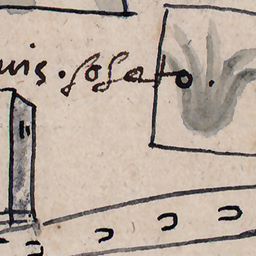 uis. sosato.